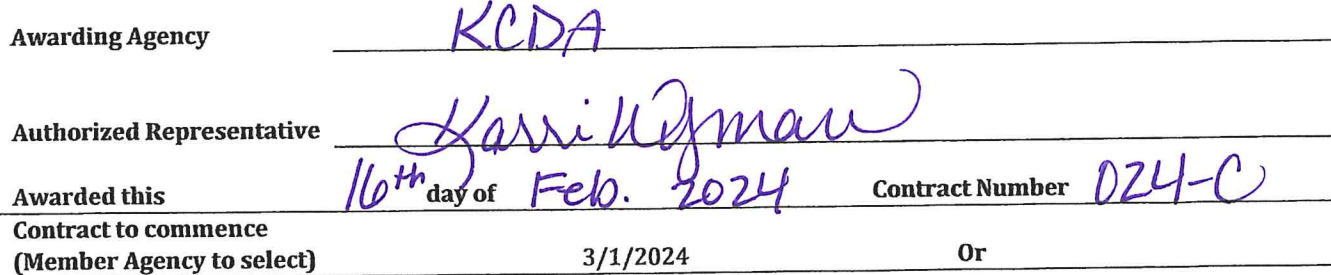 Awarding Agency KCDA
Authorized Representative Karri Wyman
Awarded this 16th day of Feb. 2024 Contract Number 024-C
Contract to commence
(Member Agency to select) 3/1/2024 Or